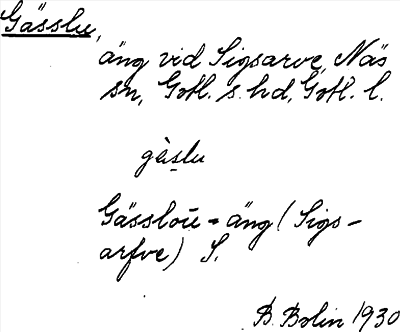 Gässlu,
äng vid Sigsarve, Näs
sn, Gotl. s. hd, Gotl. l.
gèslu
Gässloū = äng (Sigs-
arfve) S.
B. Bolin 1930